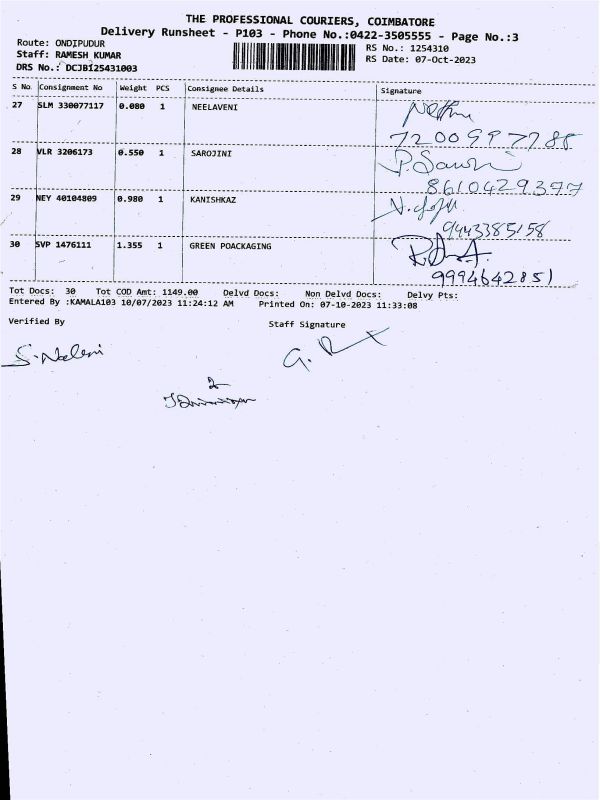 THE PROFESSIONAL COURIERS, COIMBATORE
Delivery Runsheet - P103 - Phone No.:0422-3505555 - Page No.:3
Route: ONDIPUDUR
Staff: RAMESH KUMAR
DRS No.: DCJBI25431003
RS No.: 1254310
RS Date: 07-Oct-2023
S No Consignment No Weight PCS Consignee Details Signature
27 SLM 330077117 0.080 1 NEELAVENI
7200997788
28 VLR 3206173 0.550 1 SAROJINI
8610429377
29 NEY 40104809 0.980 1 KANISHKAZ
9443385158
30 SVP 1476111 1.355 1 GREEN POACKAGING
9994642851
Tot Docs: 30 Tot COD Amt: 1149.00 Delvd Docs: Non Delvd Docs: Delvy Pts:
Entered By :KAMALA103 10/07/2023 11:24:12 AM Printed On: 07-10-2023 11:33:08
Verified By Staff Signature
S. Naleni